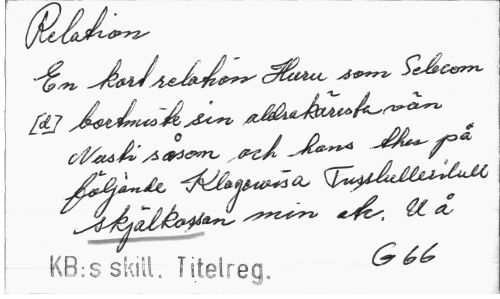 Relation
En kort relation Huru som Selecom
[d] bortmiste sin aldrakäresta vän
Nusti såsom och hans thes på
följande Klagowisa Tusslullerilull
skjälkossan min etc. U å
G 66
KB:s skill. Titelreg.